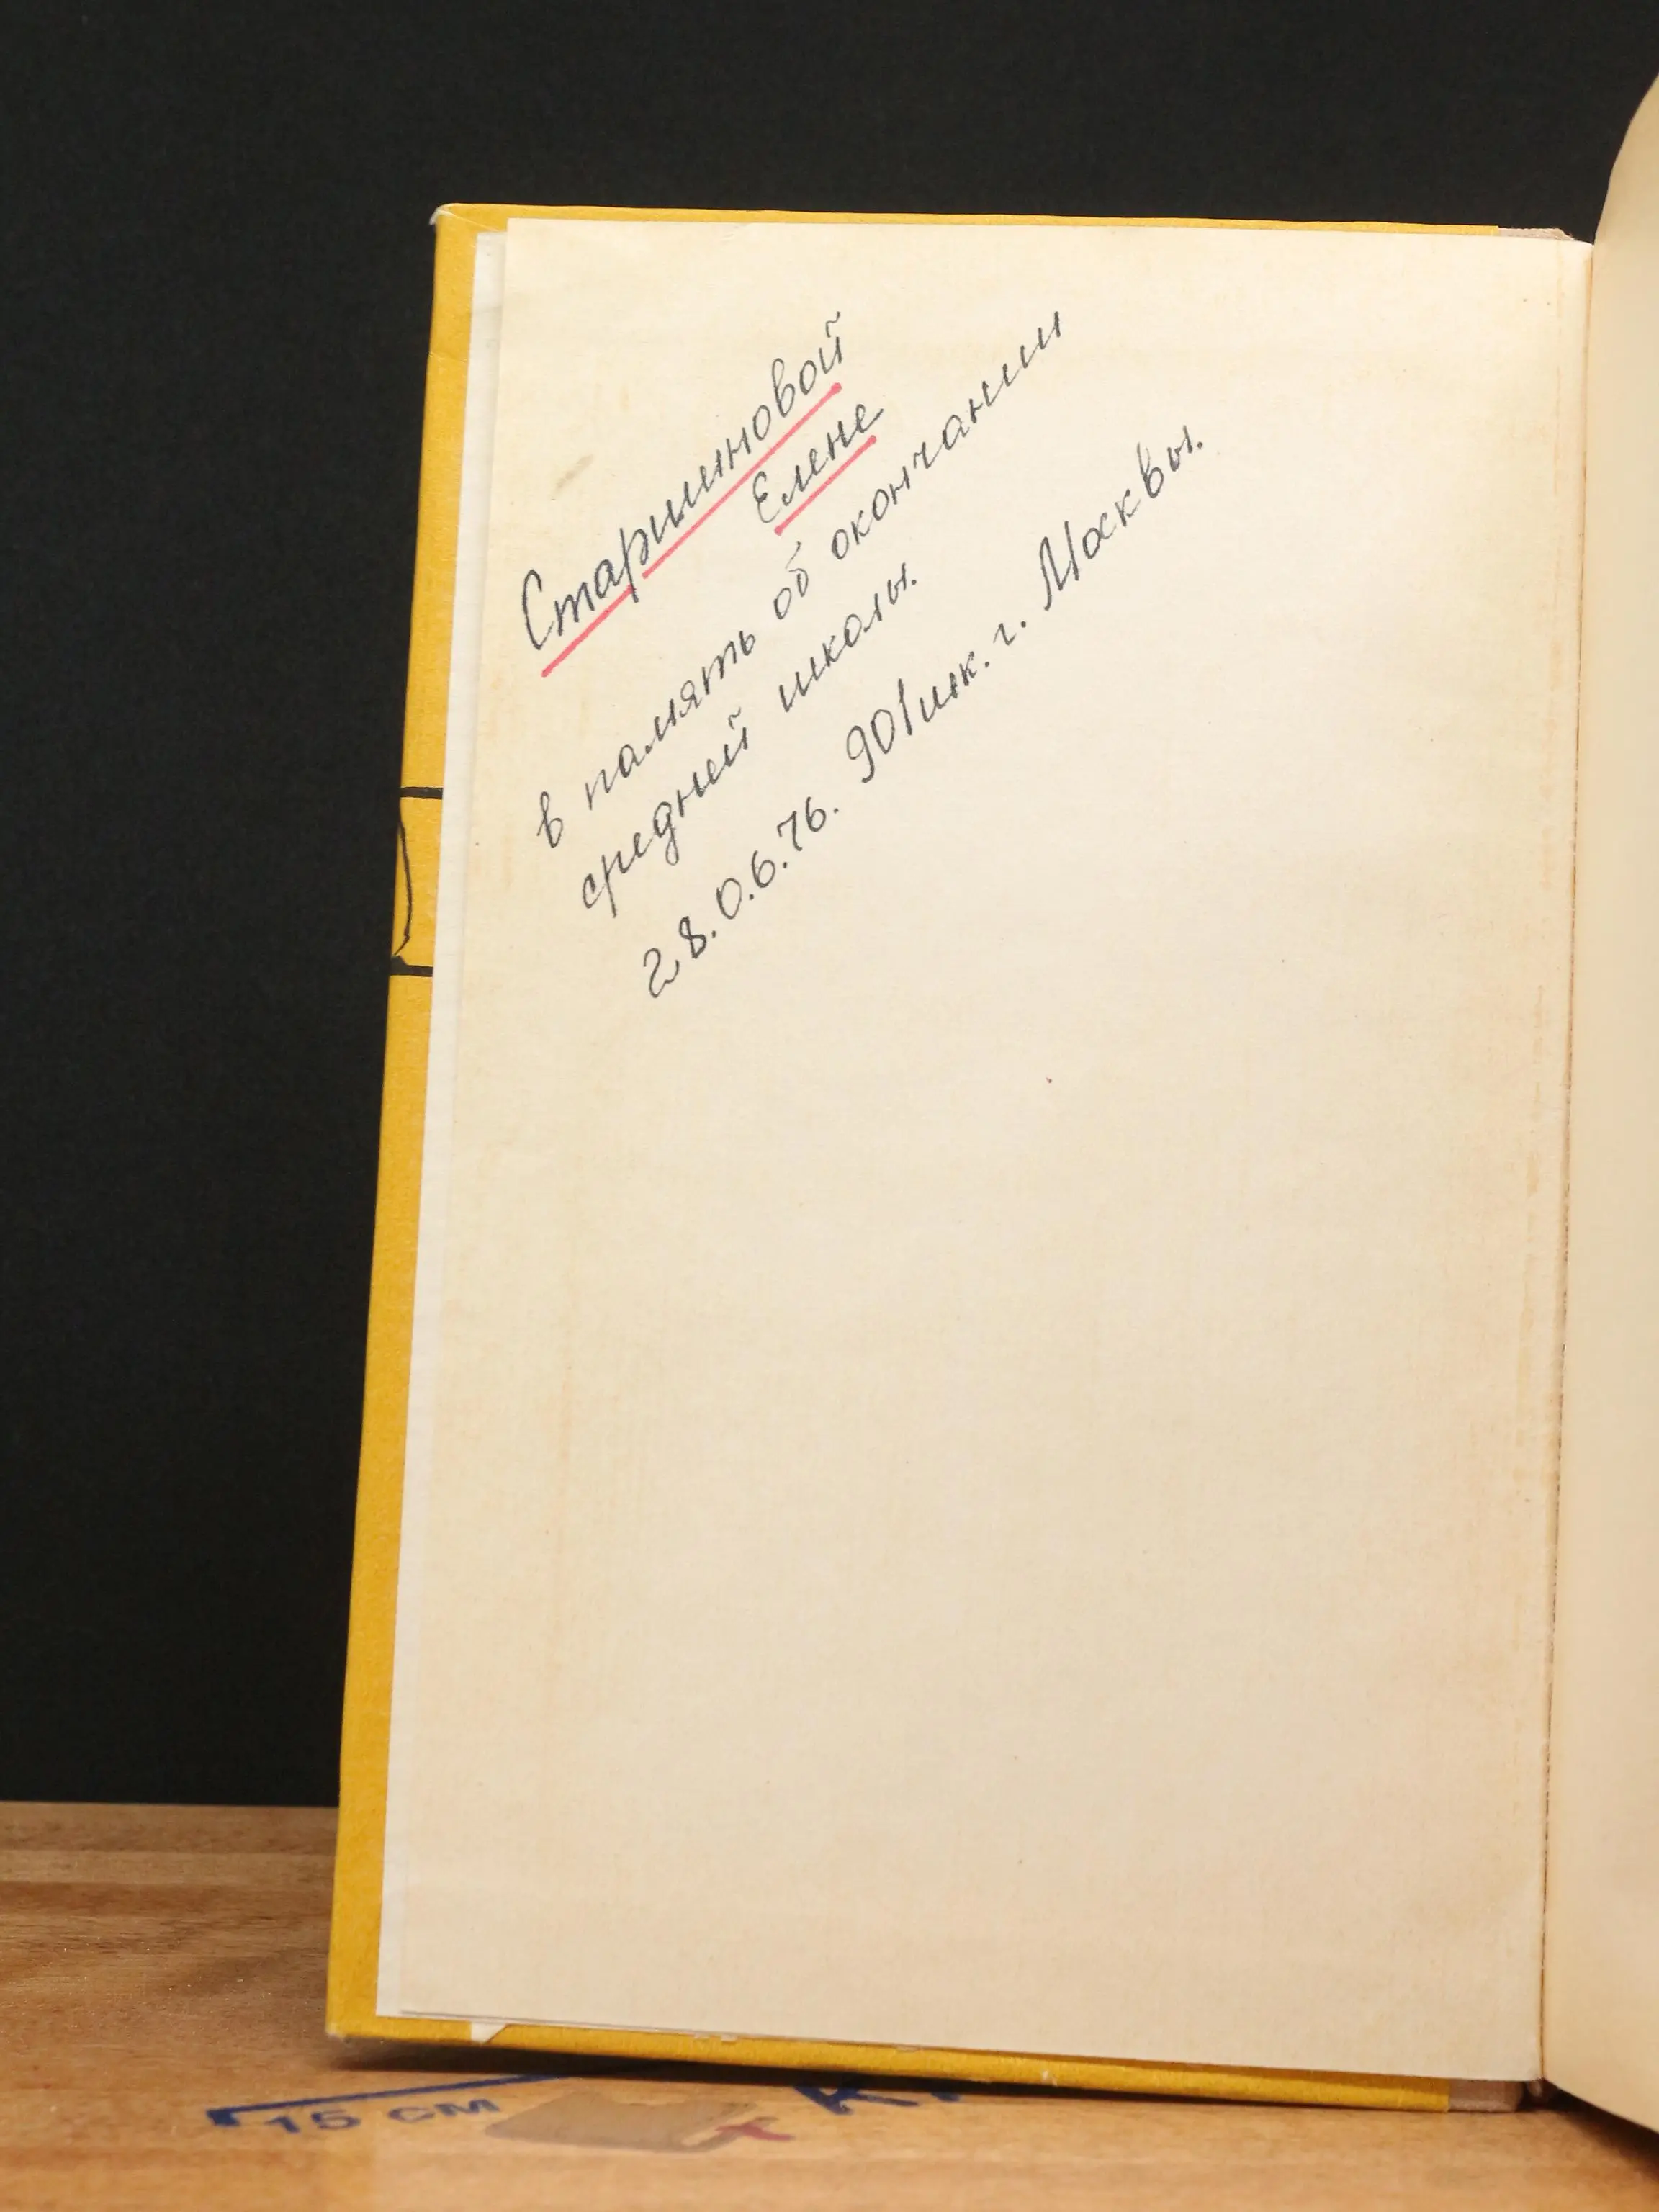 Старшиновой
Елене
в память об окончании
средней школы.
28.0.6.76. 901шк. г. Москвы.
15 СМ